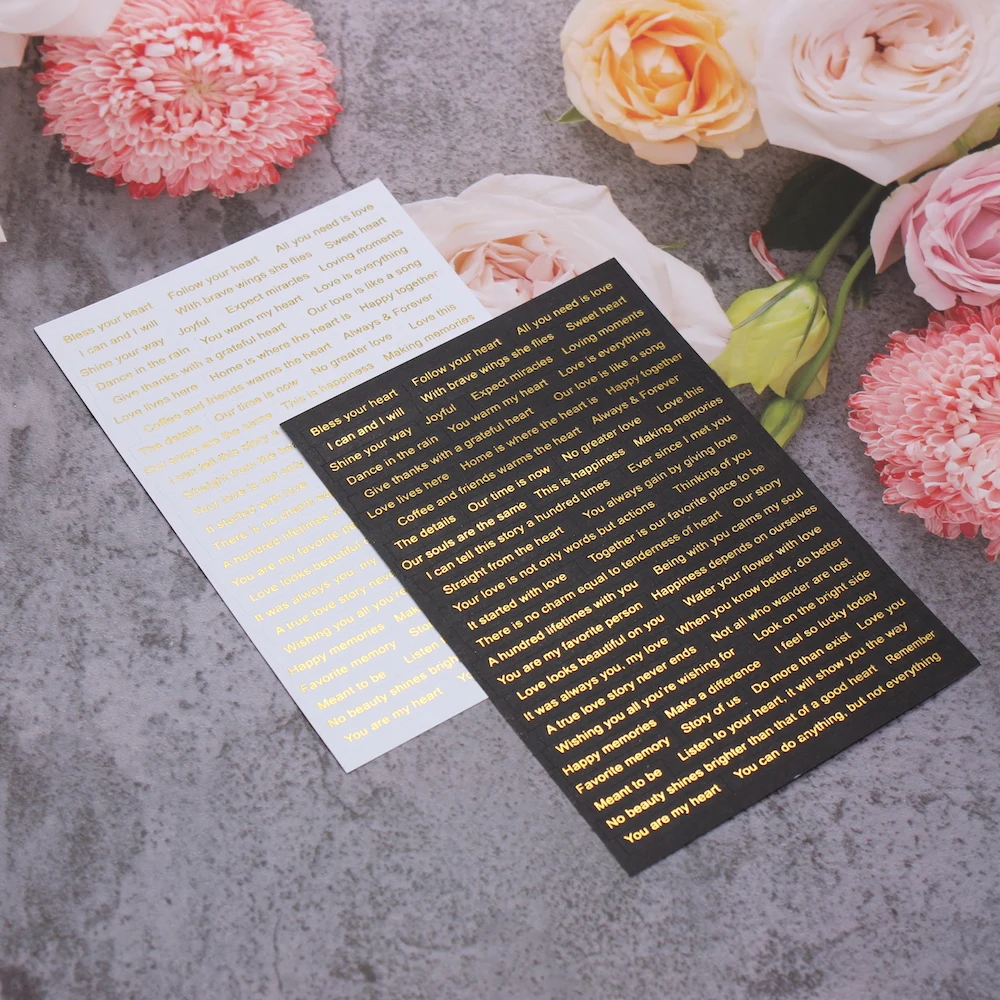 Bless your heart Follow your heart All you need is love
I can and I will With brave wings she flies Sweet heart
Shine your way Joyful Expect miracles Loving moments
Dance in the rain You warm my heart Love is everything
Give thanks with a grateful heart Our love is like a song
Love lives here Home is where the heart is Happy together
Coffee and friends warms the heart Always & Forever
The details Our time is now No greater love Love this
Our souls are the same This is happiness Making memories
I can tell this story a
Straight from the
Your love is not only
It started with love
There is no charm
A hundred lifetimes
You are my favorite
Love looks beautiful
It was always you, my
A true love story never
Wishing you all you're
Happy memories
Favorite memory
Meant to be Listen
No beauty shines
You are my heart
Bless your heart Follow your heart All you need is love
I can and I will With brave wings she flies Sweet heart
Shine your way Joyful Expect miracles Loving moments
Dance in the rain You warm my heart Love is everything
Give thanks with a grateful heart Our love is like a song
Love lives here Home is where the heart is Happy together
Coffee and friends warms the heart Always & Forever
The details Our time is now No greater love Love this
Our souls are the same This is happiness Making memories
I can tell this story a hundred times Ever since I met you
Straight from the heart You always gain by giving love
Your love is not only words but actions Thinking of you
It started with love Together is our favorite place to be
There is no charm equal to tenderness of heart Our story
A hundred lifetimes with you Being with you calms my soul
You are my favorite person Happiness depends on ourselves
Love looks beautiful on you Water your flower with love
It was always you, my love When you know better, do better
A true love story never ends Not all who wander are lost
Wishing you all you're wishing for Look on the bright side
Happy memories Make a difference I feel so lucky today
Favorite memory Story of us Do more than exist Love you
Meant to be Listen to your heart, it will show you the way
No beauty shines brighter than that of a good heart Remember
You are my heart You can do anything, but not everything